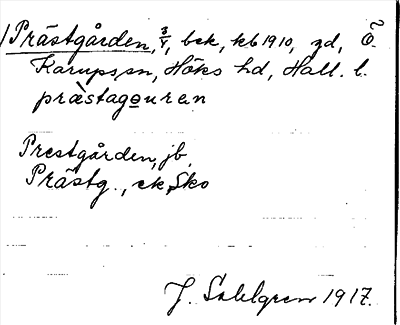 Prästgården, 3/4, bek, kb 1910, gd, Ö.
Karups sn, Höks hd, Hall. l.
præ̀stago̲uren
Prestgården, jb
Prästg., ek, Sko
J. Sahlgren 1917.